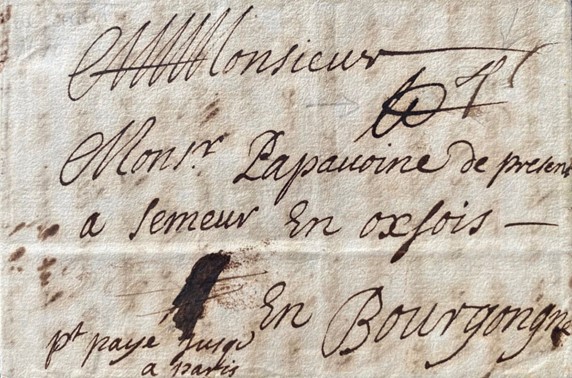 Monsieur
Monsr. Papavoine de present
a Semeur En oxsois —
En Bourgongne
pt payé Jusqe
a paris